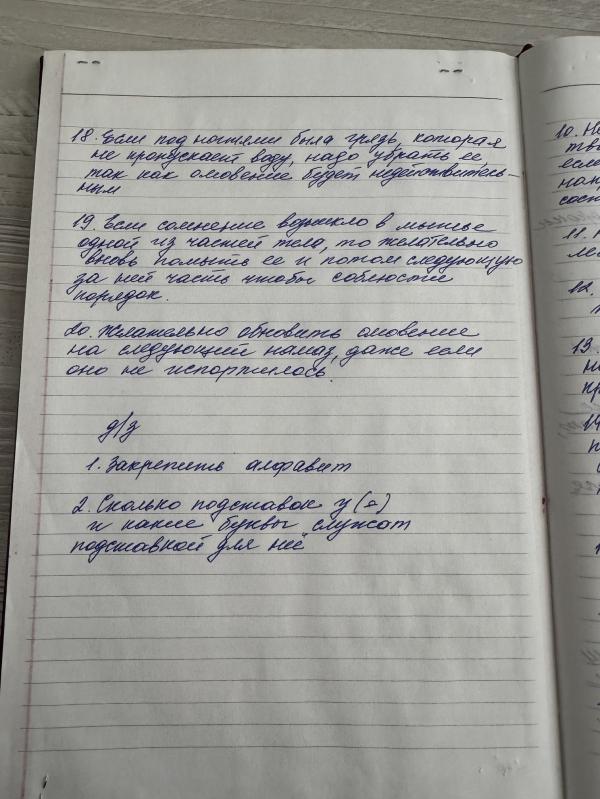 18. Если под ногтями была грязь, которая
не пропускает воду, надо убрать ее,
так как омовение будет недействитель-
ным
19. Если сомнение возникло в мытье
одной из частей тела, то желательно
вновь помыть ее и потом следующую
за ней часть чтобы соблюсти
порядок.
20. Желательно обновить омовение
на следующий намаз, даже если
оно не испортилось.
д/з
1. Закрепить алфавит
2. Сколько подставок у (ء)
и какие буквы служат
подставкой для неё
10. Не
тво
если
нам
сост
11.
ле
12.
13.
но
пр
14
п